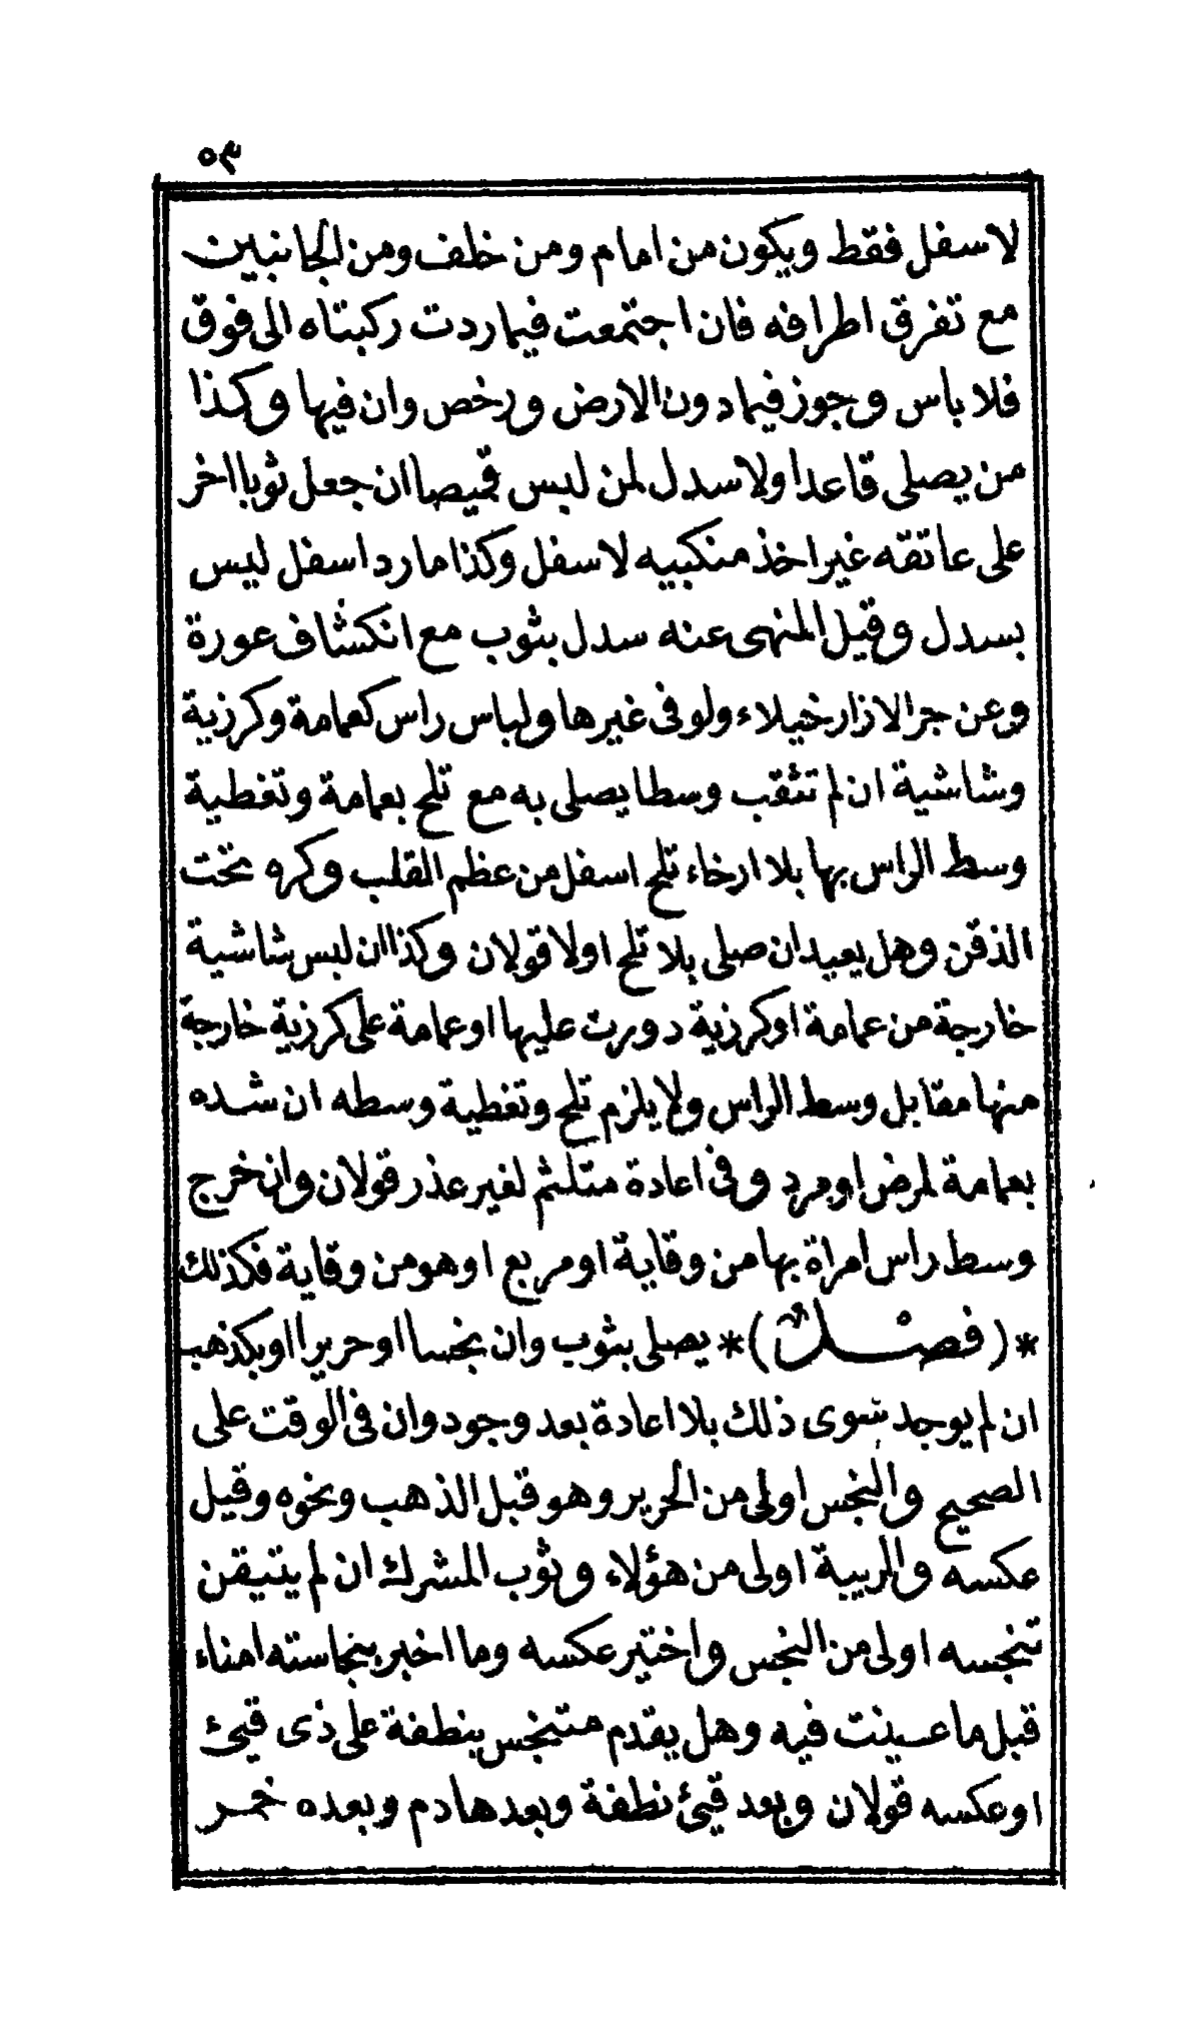 ٥٣
لاسفل فقط ويكون من امام ومن خلف ومن الجانبين
مع تفرق اطرافه فان اجتمعت فيماردت ركبتاه الى فوق
فلا باس وجوز فيمادون الارض ورخص وان فيها وكذا
من يصلى قاعدا ولا سدل لمن لبس قميصا ان جعل ثوبا اخر
على عاتقه غير اخذ منكبيه لاسفل وكذا مارد اسفل ليس
بسدل وقيل المنهى عنه سدل بثوب مع انكشاف عورة
وعن جر الازار خيلاء ولو فى غيرها ولباس راس كعمامة وكرزية
وشاشية ان لم تثقب وسطا يصلى به مع تلح بعمامة وتغطية
وسط الراس بها بلا ارخاء تلح اسفل من عظم القلب وكره تحت
الذقن وهل يعيد ان صلى بلا تلح اولا قولان وكذا ان لبس شاشية
خارجة من عمامة او كرزية دورت عليها او عمامة على كرزية خارجة
منها مقابل وسط الراس ولا يلزم تلح وتغطية وسطه ان شده
بعمامة لمرض او برد وفى اعادة متلثم لغير عذر قولان وان خرج
وسط راس امراة بها من وقاية او مربع او هو من وقاية فكذلك
*(فصل)* يصلى بثوب وان نجسا او حريرا او بكذهب
ان لم يوجد سوى ذلك بلا اعادة بعد وجود وان فى الوقت على
الصحيح والنجس اولى من الحرير وهو قبل الذهب ونحوه وقيل
عكسه والريبة اولى من هؤلاء وثوب المشرك ان لم يتيقن
تنجسه اولى من النجس واختير عكسه وما اخبر بنجاسته امناء
قبل ما عسينت فيه وهل يقدم متنجس بنطفة على ذى قيئ
او عكسه قولان وبعد قيئ نطفة وبعدها دم وبعده خمر